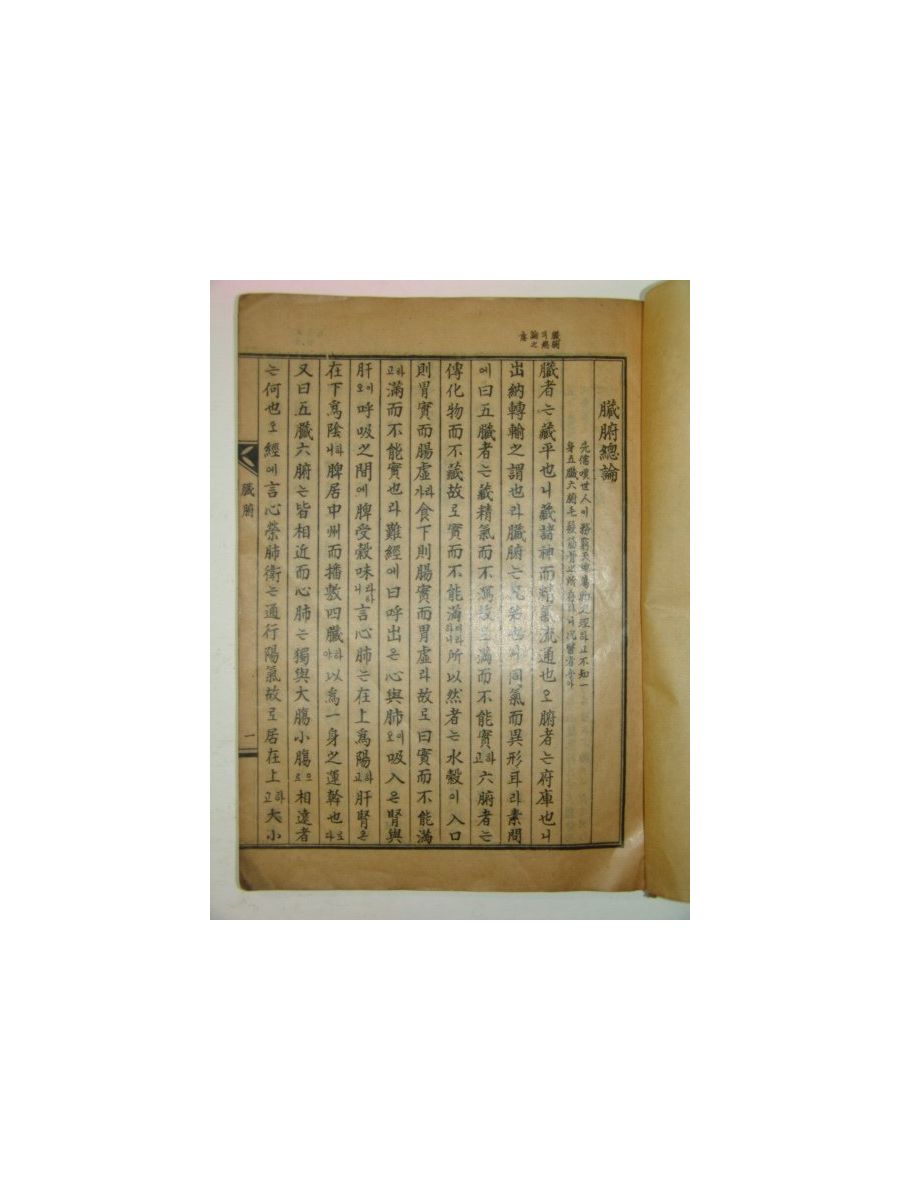 臟腑總論
先儒嘆世人이務窮天地萬物之理하고不知一
身五臟六腑毛髮筋骨之所存하니况醫者乎아
臟者는藏平也니藏諸神而精氣流通也오腑者는府庫也니
出納轉輸之謂也라臟腑는兄弟也니同氣而異形耳라素問
에曰五臟者는藏精氣而不瀉故로滿而不能實하고六腑者는
傳化物而不藏故로實而不能滿이라하니所以然者는水穀이入口
則胃實而腸虛하라가食下則腸實而胃虛라故로曰實而不能滿
하고滿而不能實也라難經에曰呼出은心與肺이오吸入은腎與
肝이오呼吸之間에脾受穀味라하니言心肺는在上爲陽하고肝腎은
在下爲陰하니脾居中州而播敷四臟하야以爲一身之運幹也로다
又曰五臟六腑는皆相近而心肺는獨與大膓小膓으로相遠者
는何也오經에言心榮肺衛는通行陽氣故로居在上하고大小
臟腑
一